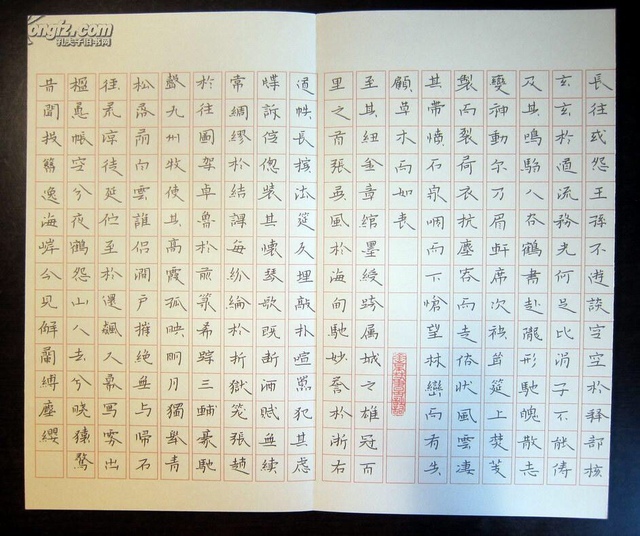 長往或怨王孫不遊談空空於釋部核
玄玄於道流務光何足比涓子不能儔
及其鳴騶入谷鶴書赴隴形馳魄散志
變神動尔乃眉軒席次袂聳筵上焚芰
製而裂荷衣抗塵容而走俗狀風雲淒
其帶憤石泉咽而下愴望林巒而有失
顧草木而如喪
至其紐金章綰墨綬跨属城之雄冠百
里之首張英風於海甸馳妙譽於浙右
道帙長擯法筵久埋敲扑喧囂犯其慮
牒訴倥傯裝其懷琴歌既斷酒賦無續
常綢繆於結課每紛綸於折獄籠張趙
於往圖架卓魯於前籙希蹤三輔豪馳
聲九州牧使其高霞孤映明月獨舉青
松落蔭白雲誰侶澗戶摧絕無与歸石
徑荒涼徒延佇至於還飆入幕寫霧出
楹蕙帳空兮夜鶴怨山人去兮曉猿驚
昔聞投簪逸海岸今見解蘭縛塵纓
kongfz.com
孔夫子旧书网